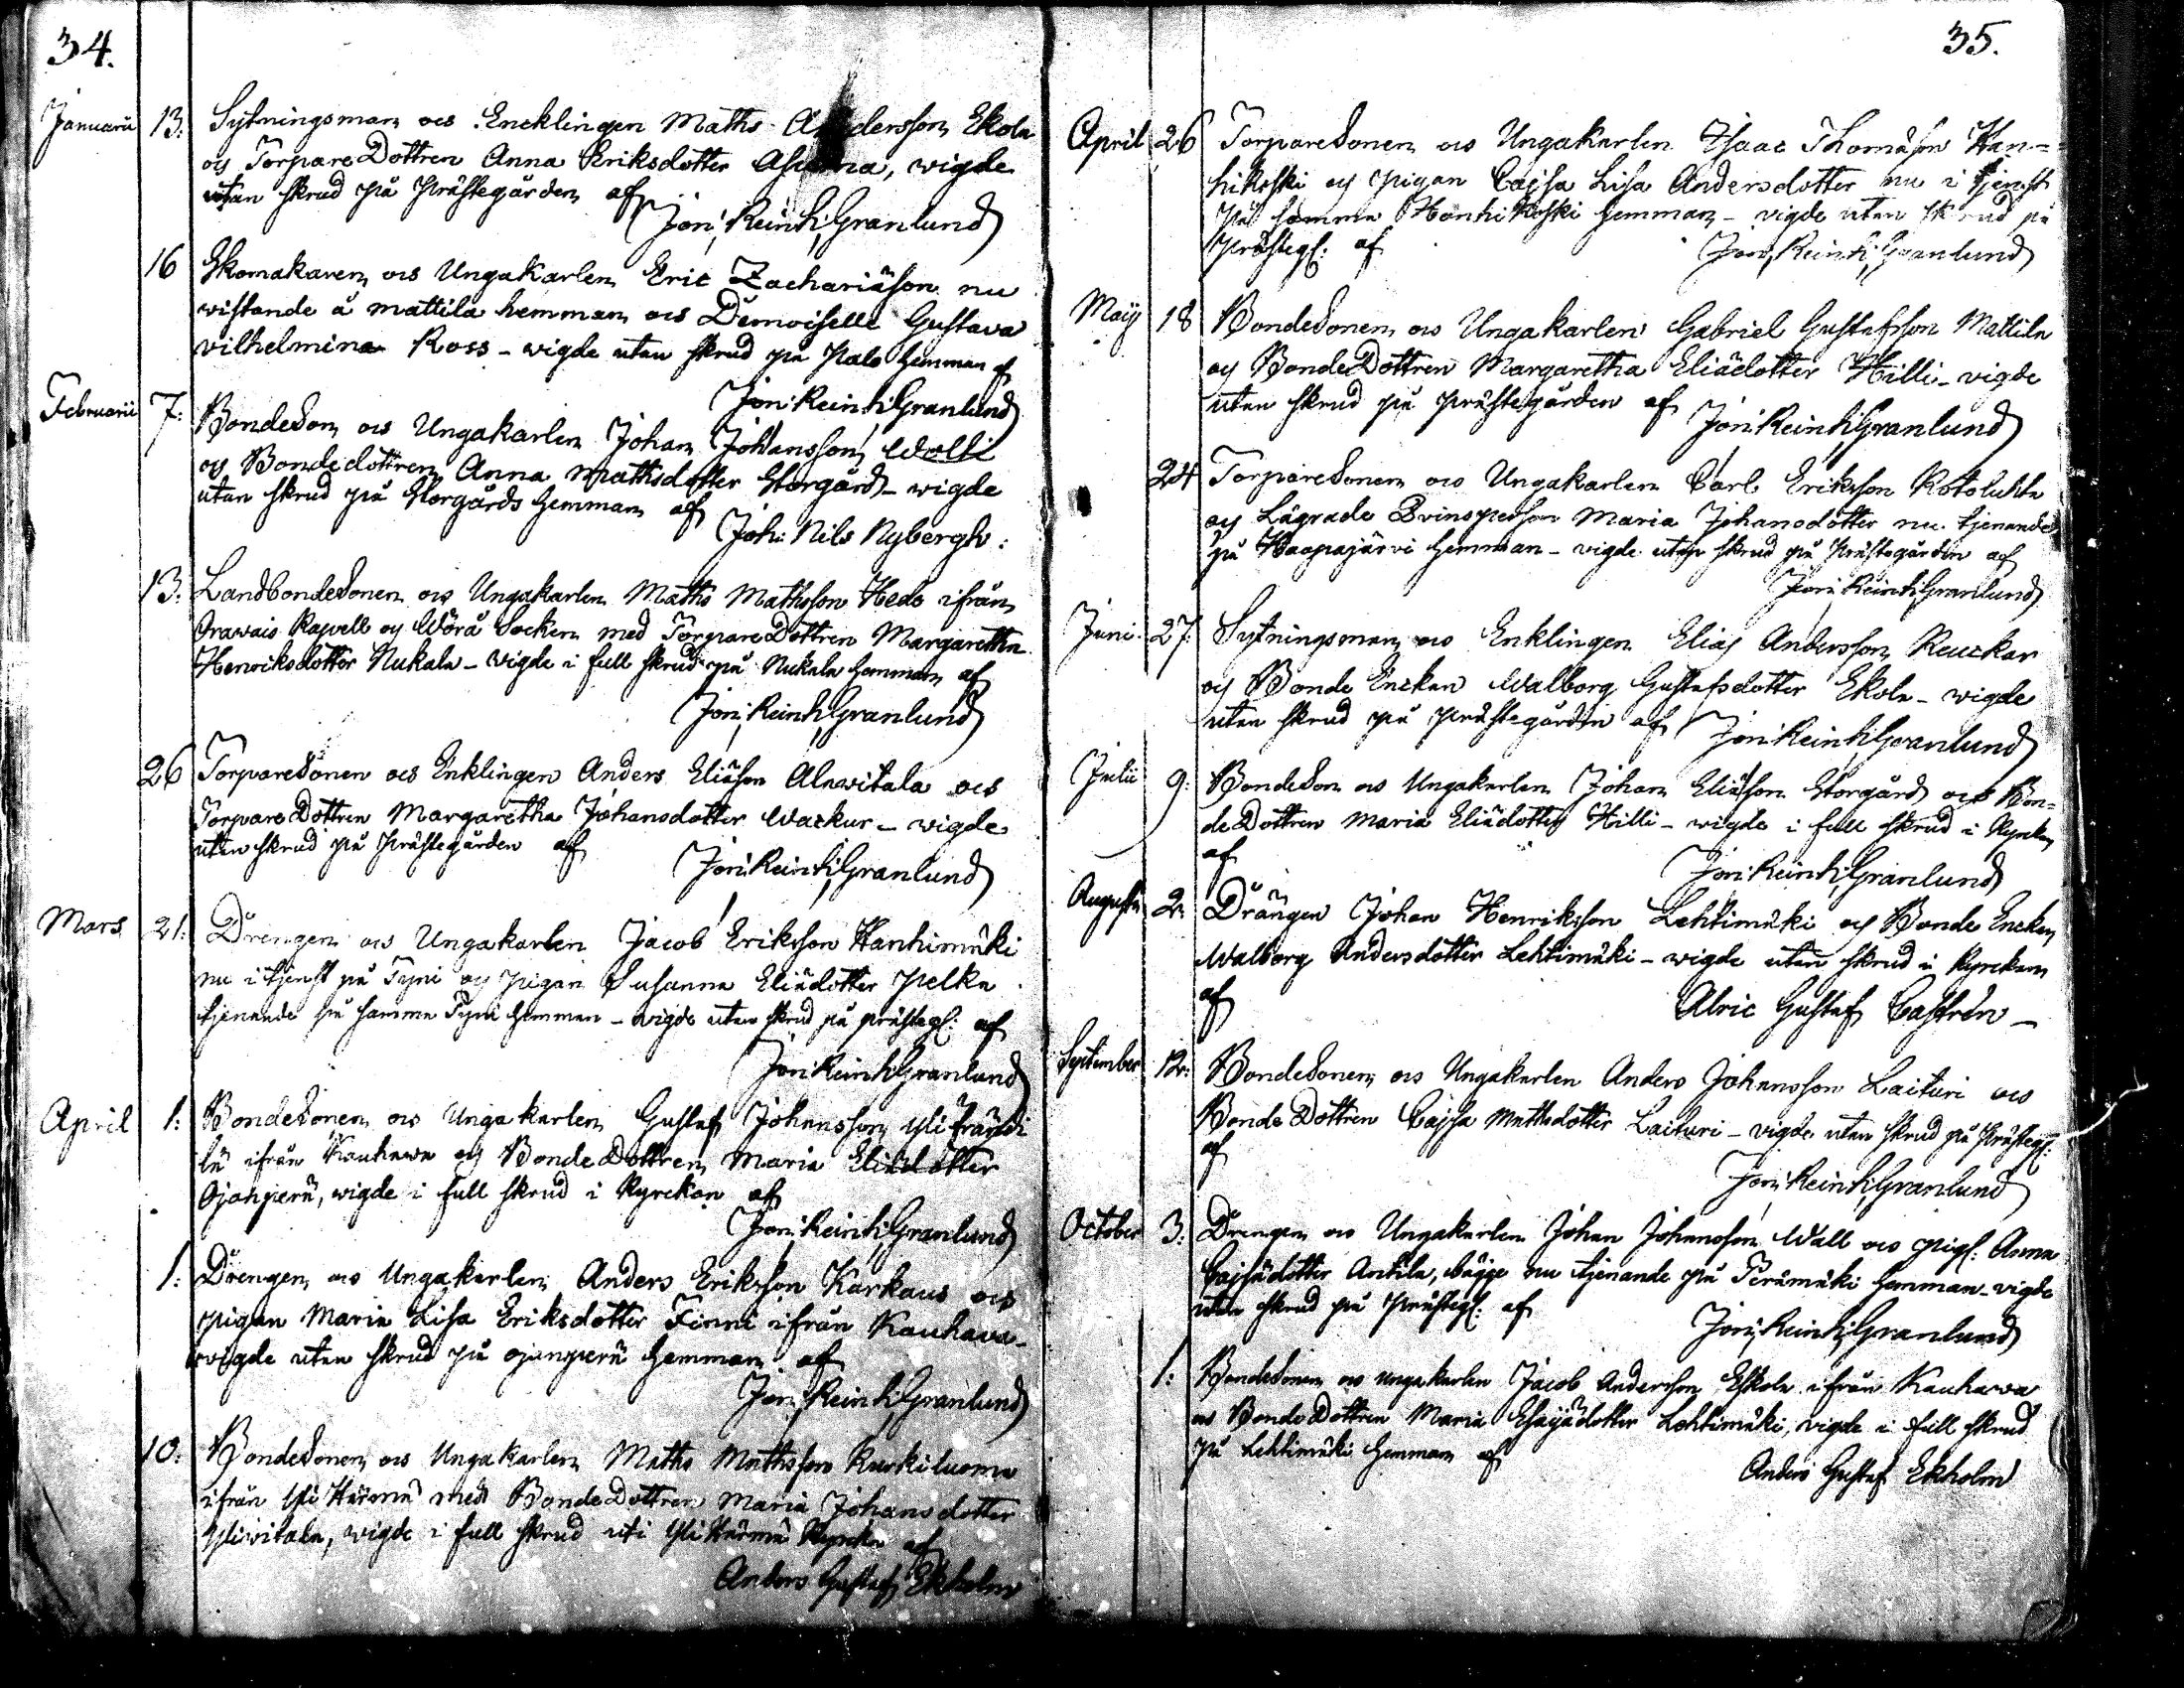 34.
Januarii 13: Sytningsman ocs Encklingen Maths Andersson Ekola
och Torpare Dottren Anna Eriksdotter, wigde
utan skrud på Prästegården af
Joh: Reinh: Granlund
16 Skomakaren ocs Ungakarlen Eric Zachariäson nu
wistande å Mattila hemman ocs Demoiselle Gustava
Vilhelmina Ross - wigde utan skrud på Palo hemman af
Joh: Reinh: Granlund
Februarii 7: BondeSon ocs Ungakarlen Johan Johansson Wolti
och Bondedottren Anna Mathsdotter Storgård - wigde
utan skrud på Storgårds hemman af
Joh: Nils Nybergh:
13: LandbondeSonen ocs Ungakarlen Maths Mathsson Hedo ifrån
Orawais Kapell och Wörå Socken med TorpareDottren Margaretha
Henriksdotter Nukala - wigde i full skrud på Nukala hemman af
Joh: Reinh: Granlund
26 TorpareSonen ocs Enklingen Anders Eliäson Alawitala ocs
TorpareDottren Margaretha Johansdotter Wackur - wigde
utan skrud på Prästegården af
Joh: Reinh: Granlund
Mars 21: Drengen ocs Ungakarlen Jacob Eriksson Hanhimäki
nu i tjenst på Tyni och Pigan Susanna Eliädotter Pelka
tjenande på samma Tyni hemman - wigde utan skrud på Prästegl: af
Joh: Reinh: Granlund
April 1: BondeSonen ocs Ungakarlen Gustaf Johansson Ylifränti
lä ifrån Kauhawa och BondeDottren Maria Eliädotter
Ojanperä, wigde i full skrud i Kyrckan af
Joh: Reinh: Granlund
1: Drengen ocs Ungakarlen Anders Eriksson Karkaus ocs
Pigan Maria Lisa Eriksdotter Finni ifrån Kauhava -
wigde utan skrud på Ojanperä hemman af
Joh: Reinh: Granlund
10: BondeSonen ocs Ungakarlen Maths Mathsson Kurkiluoma
ifrån Yli Härmä med BondeDottren Maria Johansdotter
Yliwitala, wigde i full skrud uti Yli Härmä Kyrcka af
Anders Gustaf Ekholm
35.
April 26 TorpareSonen ocs Ungakarlen Isaac Thomasson Han=
hikoski och Pigan Cajsa Lisa Andersdotter nu i tjenst
På samma Hanhikoski hemman - vigde utan skrud på
Prästegl: af
Joh: Reinh: Granlund
Maij 18 BondeSonen ocs Ungakarlen Gabriel Gustafsson Mattila
och BondeDottren Margaretha Eliädotter Hilli - vigde
utan skrud på Prästegården af
Joh: Reinh: Granlund
24 TorpareSonen ocs Ungakarlen Carl Eriksson Kotoluhta
och Lägrade Qvinsperson Maria Johansdotter nu tjenande
på Haapajärvi hemman - vigde utan skrud på Prästegården af
Joh: Reinh: Granlund
Juni 27: Sytningsman ocs Enklingen Elias Andersson Reuckar
och Bonde Enckan Walborg Gustafsdotter Ekola - wigde
utan skrud på Prästegården af
Joh: Reinh: Granlund
Julii 9: BondeSon ocs Ungakarlen Johan Eliäson Storgård ocs Bon=
deDottren Maria Eliädotter Hilli - wigde i full skrud i Kyrckan
af
Joh: Reinh: Granlund
Augusti 2: Drängen Johan Henriksson Lehtimäki och Bonde Enckan
Walborg Andersdotter Lehtimäki - wigde utan skrud i Kyrckan
af
Alric Gustaf Castrén -
September 12: BondeSonen ocs Ungakarlen Anders Johansson Laituri ocs
BondeDottren Cajsa Mathsdotter Laituri - vigde utan skrud på Prästegl:
af
Joh: Reinh: Granlund
October 3: Drengen ocs Ungakarlen Johan Johansson Wall ocs Pigl: Anna
Cajsädotter Antila, bägge nu tjenande på Perämäki hemman - vigde
utan skrud på Prästegl: af
Joh: Reinh: Granlund
1: BondeSonen ocs Ungakarlen Jacob Andersson Eskola ifrån Kauhawa
ocs BondeDottren Maria Esajädotter Lehtimäki, vigde i full skrud
på Lehtimäki hemman af
Anders Gustaf Ekholm